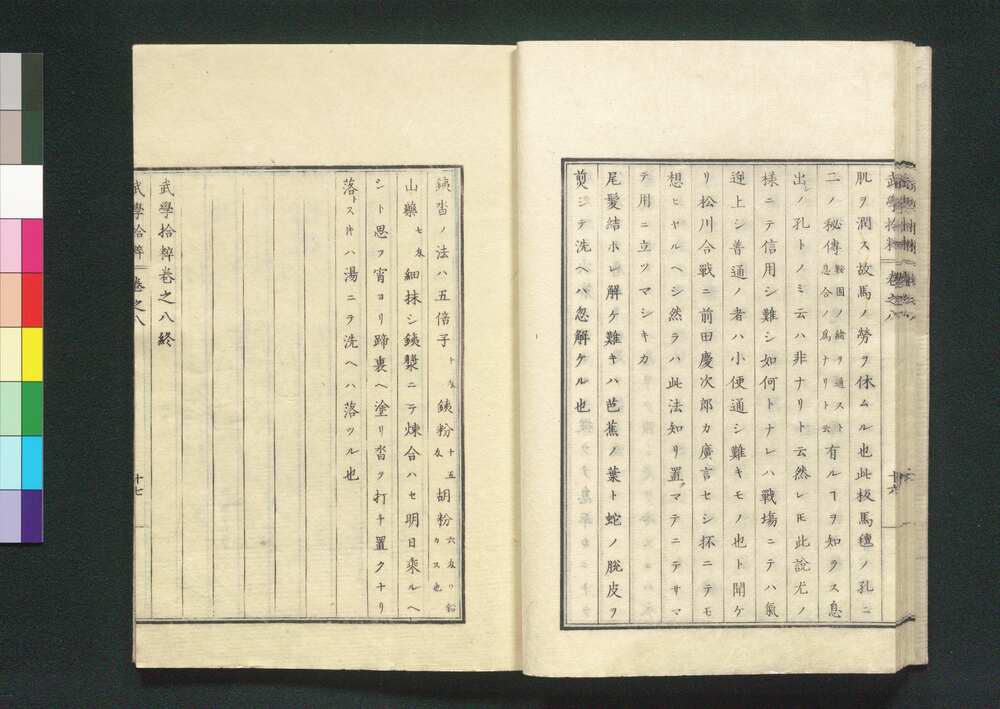 肌ヲ潤ス故馬ノ勞ヲ休ムル也此板馬氈ノ孔ニ
二ノ秘傳鞍固ノ緒ヲ通スト息合ノ爲ナリト云有ルヿヲ知ラス息
出ノ孔トノミ云ハ非ナリト云然レ𪜈此說尤ノ
樣ニテ信用シ難シ如何トナレハ戰塲ニテハ氣
逆上シ普通ノ者ハ小便通シ難キモノ也ト聞ケ
リ松川合戰ニ前田慶次郎カ廣言セシ抔ニテモ
想ヒヤルヘシ然ラハ此法知リ置マテニテサマ
テ用ニ立ツマシキカ
尾髮結ホレ解ケ難キハ芭蕉ノ葉ト蛇ノ脫皮ヲ
煎シテ洗ヘハ忽解ケル也
武學拾粹 卷之八
十六
銕沓ノ法ハ五倍子銕粉十五胡粉
山藥七細抹シ銕漿ニテ煉合ハセ明日乘ルヘ
シト思フ宵ヨリ蹄裏ヘ塗リ沓ヲ打チ置クナリ
落トス𪜈ハ湯ニラ洗ヘハ落ツル也
武學拾粹卷之八終
武學拾粹 卷之八
十七